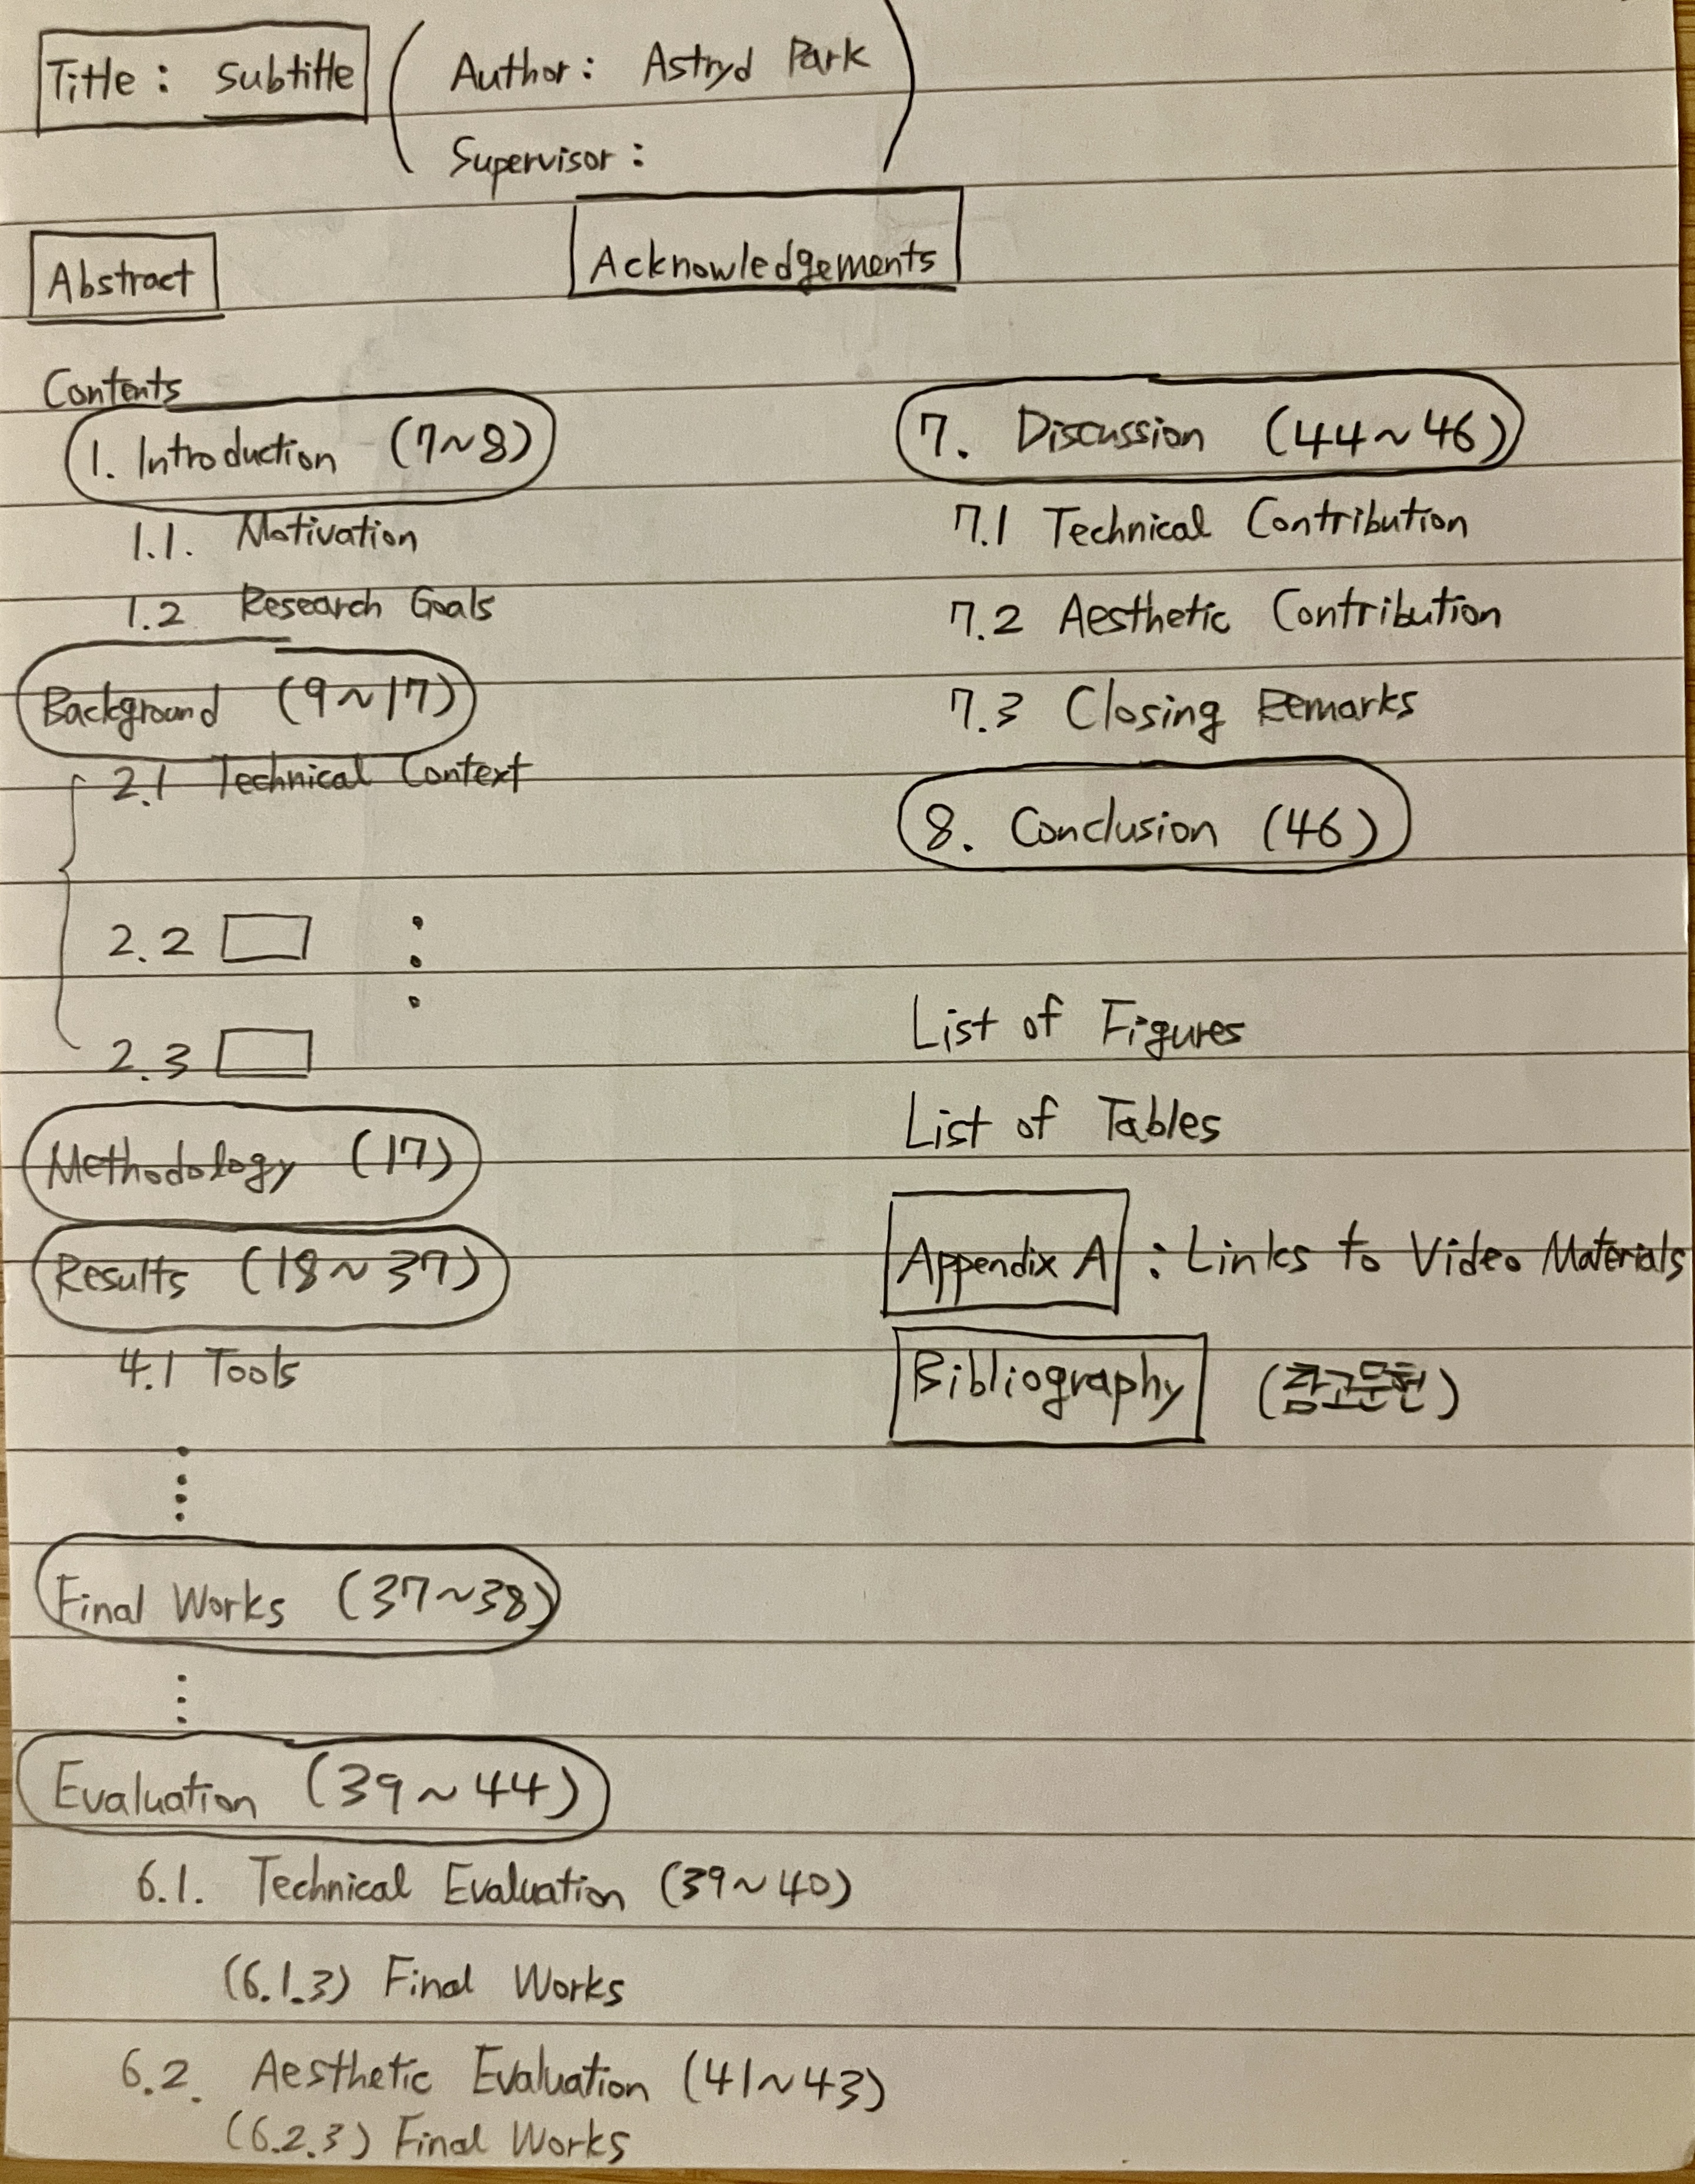 Title: Subtitle
Author: Astryd Park
Supervisor:
Abstract
Acknowledgements
Contents
1. Introduction (7~8)
1.1. Motivation
1.2 Research Goals
Background (9~17)
2.1 Technical Context
2.2
2.3
Methodology (17)
Results (18~37)
4.1 Tools
Final Works (37~38)
Evaluation (39~44)
6.1. Technical Evaluation (39~40)
(6.1.3) Final Works
6.2. Aesthetic Evaluation (41~43)
(6.2.3) Final Works
7. Discussion (44~46)
7.1 Technical Contribution
7.2 Aesthetic Contribution
7.3 Closing Remarks
8. Conclusion (46)
List of Figures
List of Tables
Appendix A : Links to Video Materials
Bibliography (참고문헌)